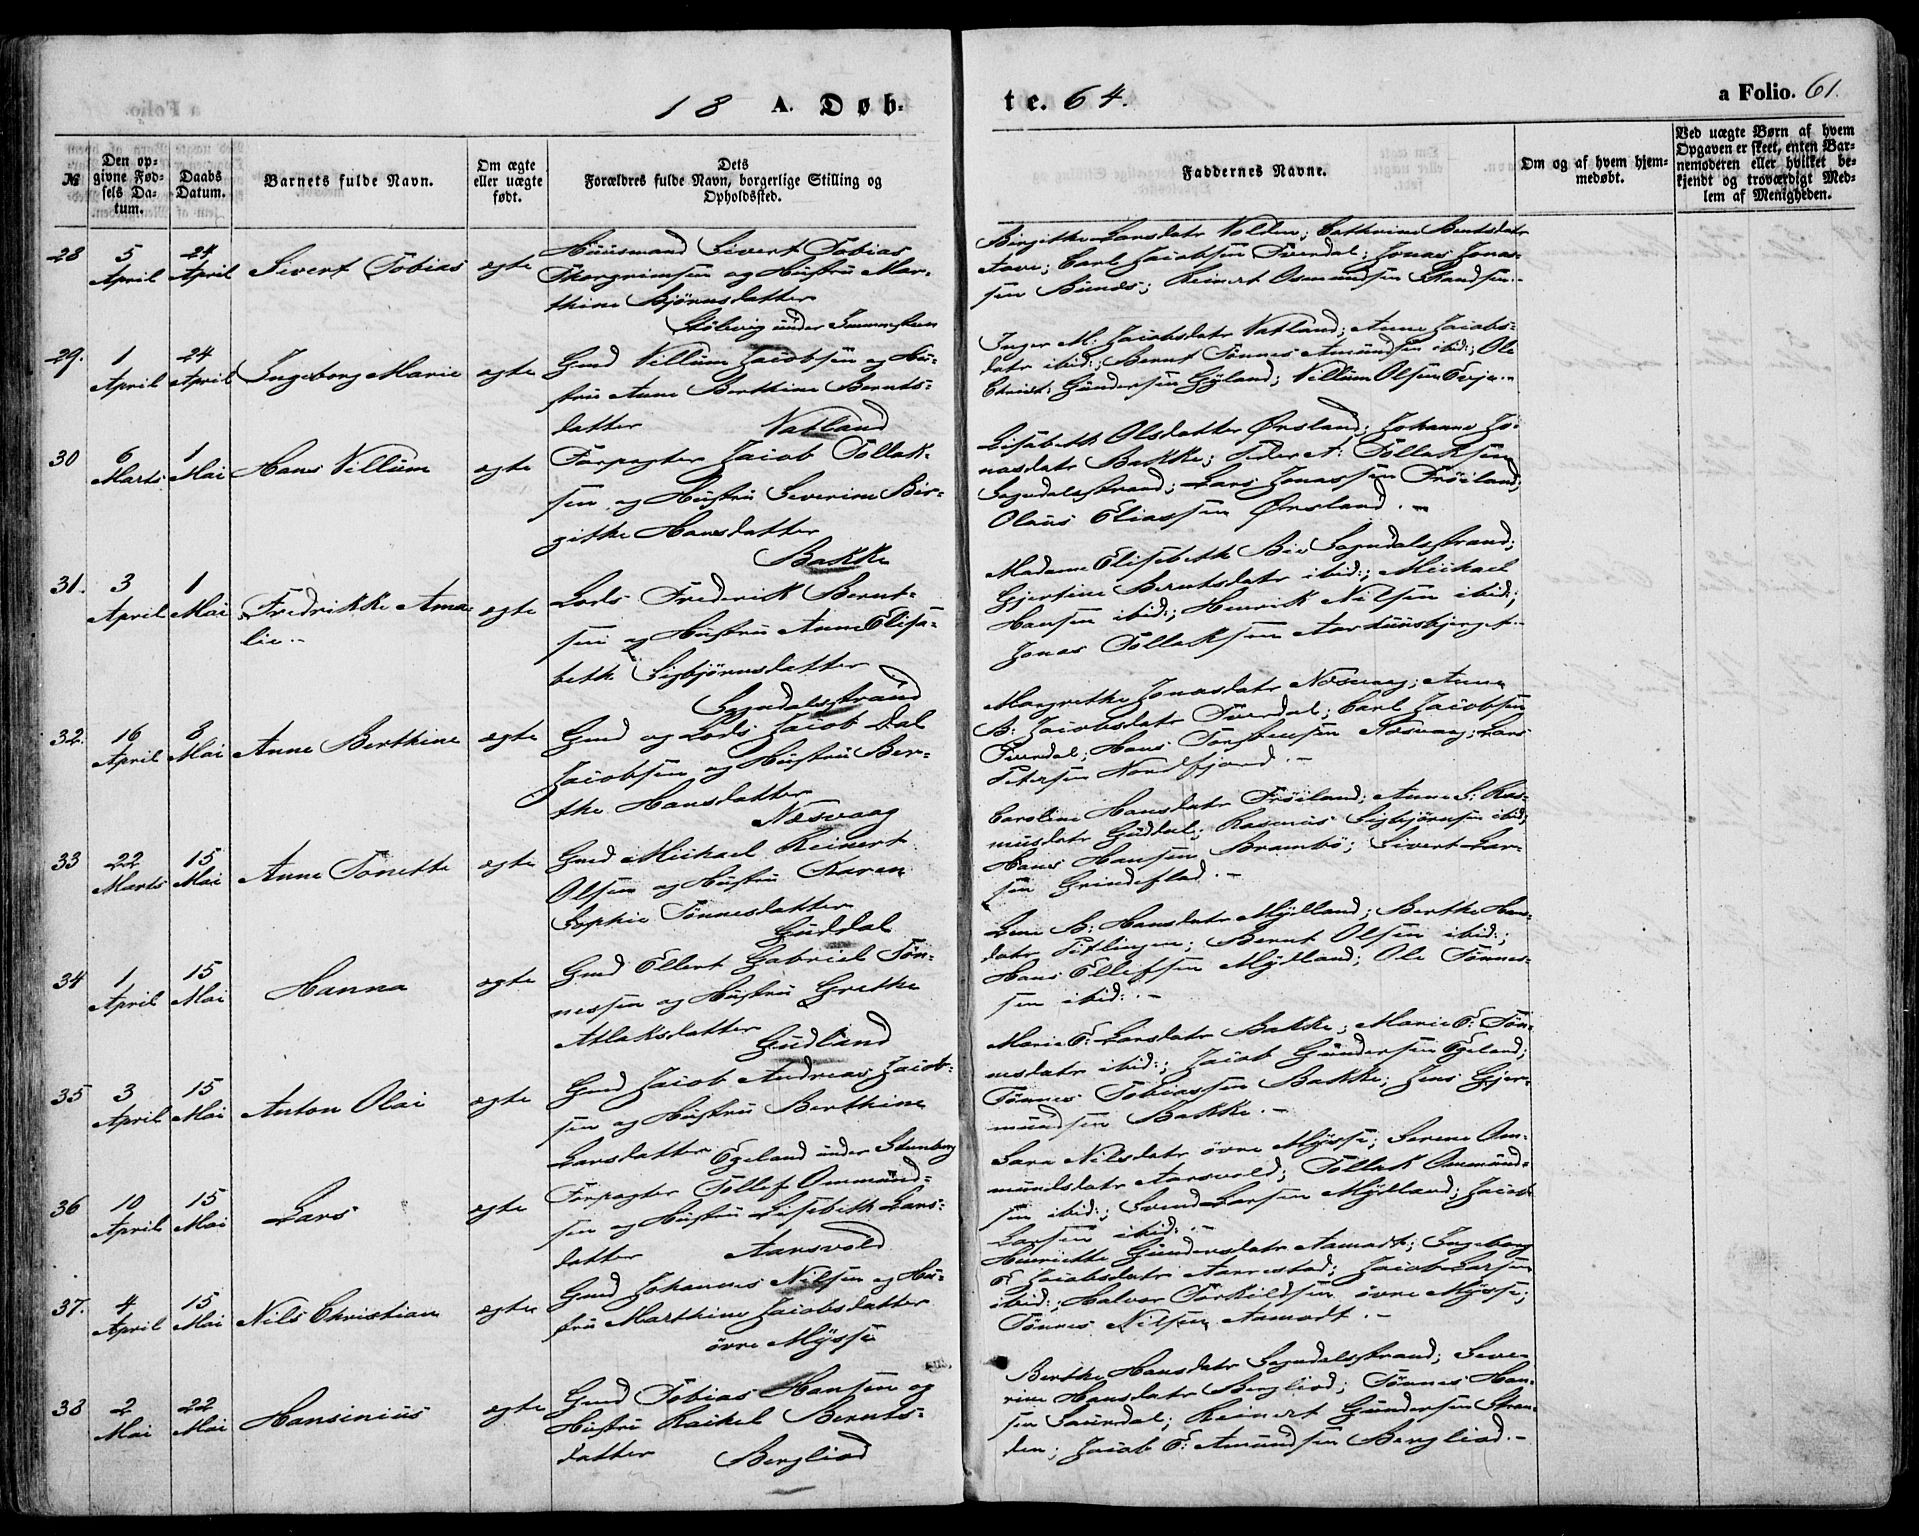 18 A. Døb-
te. 64.
a Folio. 61.
№
Den op-
givne Fød-
sels Da-
tum.
Daabs
Datum.
Barnets fulde Navn.
Om ægte
eller uægte
født.
Dets
Forældres fulde Navn, borgerlige Stilling og
Opholdssted.
Faddernes Navne.
Om og af hvem hjem-
medøbt.
Ved uægte Børn af hvem
Opgaven er skeet, enten Bar-
nemoderen eller hvilket be-
kjendt og troværdigt Med-
lem af Menigheden.
28 5 April 24 April Sivert Tobias ægte
Huusmand Sivert Tobias
Thorgrimsen og Hustru Mar-
thine Bjørnsdatter
under
Birgithe Larsdatr Volden; Cathrine Berntsdatr
Aave; Carl Jacobsen Tverdal; Jonas Jonas-
sen Bunes; Reinert Osmundsen
29. 1 April 24 April Ingeborg Marie ægte
Gmd Villum Jacobsen og Hu-
stru Anne Berthine Bernts-
datter Natland
Inger M: Jacobsdatr Natland; Anne Jacobs-
datr ibid:; Bernt Tønnes Amundsen ibid:; Ole
Christ: Gundersen Gyland; Villum Olsen Evje.-
30 6 Marts 1 Mai Hans Villum ægte
Forpagter Jacob Tollak-
sen og Hustru Severine Bir-
githe Hansdatter
Bakke
Lisabeth Olsdatter Ørsland; Johanne Jo-
nasdatr Bakke; Peder A: Tollaksen
Sogndalsstrand; Lars Jonassen Frøiland;
Olaus Eliassen Ørsland.-
31. 3 April 1 Mai Fredrikke Ama-
lie.-
ægte
Lods Frederik Bernt-
sen og Hustru Anne Elisa-
beth Sigbjørnsdatter
Sogndalsstrand
Madame Elisebeth Bie Sogndalsstrand;
Gjertine Berntsdatr ibid:; Michael
Hansen ibid:; Henrik Nilsen ibid:;
Jonas Tollaksen
32. 16 April 8 Mai Anne Berthine ægte
Gmd og Lods Jacob Dal
Jacobsen og Hustru Ber-
the Hansdatter
Næsvaag
Margrethe Jonasdatr Næsvaag; Anne
B: Jacobsdatr Tverdal; Carl Jacobsen
Tverdal; Hans Torstensen Næsvaag; Lars
Petersen Nordfjord.-
33 22 Marts 15 Mai Anne Tonette ægte
Gmd Michael Reinert
Olsen og Hustru Karen
Sophie Tønnesdatter
Guddal
Caroline Hansdatr Frøiland; Anne S: Ras-
musdatr Guddal; Rasmus Sigbjørnsen ibid;
Hans Hansen Brambø; Sivert Lar-
sen Grindeflad.-
34 1 April 15 Mai Hanna ægte
Gmd Ellert Gabriel Tøn-
nessen og Hustru Grethe
Atlaksdatter Gudland
Lene B: Hansdatr Mydland; Berthe Hans-
datr Bernt Olsen ibid:;
Hans Ellefsen Mydland; Ole Tønnes-
sen ibid:.-
35 3 April 15 Mai Anton Olai ægte
Gmd Jacob Andreas Jacob-
sen og Hustru Berthine
Larsdatter Egeland under Steenberg
Marie E: Larsdatr Bakke; Marie E: Tøn-
nesdatr ibid:; Jacob Gundersen Egeland;
Tønnes Tobiassen Bakke; Jens Gjer-
mundsen Bakke.-
36 10 April 15 Mai Lars ægte
Forpagter Tollef Ommund-
sen og Hustru Lisebeth Lars-
datter Aarsvold
Sara Nilsdatr øvre Mysse; Serene Om-
mundsdatr Aarsvold; Tollak Ommund-
sen ibid:; Svend Larsen Mydland; Jacob
Larsen ibid:.-
37. 4 April 15 Mai Nils Christian ægte
Gmd Johannes Nilsen og Hu-
stru Marthine Jacobsdatter
øvre Mysse
Henriette Gundersdatr Aamodt; Ingeborg
E Jacobsdatr Aarrestad; Jacob Larsen
ibid:; Halvor Torkildsen øvre Mysse;
Tønnes Nilsen Aamodt.-
38 2 Mai 22 Mai Hansinius ægte
Gmd Tobias Hansen og
Hustru Rachel Bernts-
datter Bergliod
Berthe Hansdatr Sogndalsstrand; Seve-
rine Hansdatr Bergliod; Tønnes Han-
sen Saurdal; Reinert Gundersen Stran-
den; Jacob E: Amundsen Bergliod.-